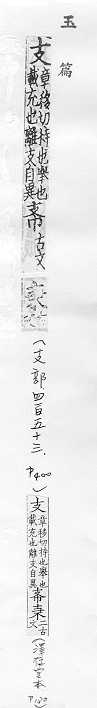 玉篇
支 章移切持也舉也
載充也離支自異 𠦙 古文
(支部 四百五十三.
P400)
支 章移切持也舉也
載充也離支自異
二古
文
(澤存堂本
P100)